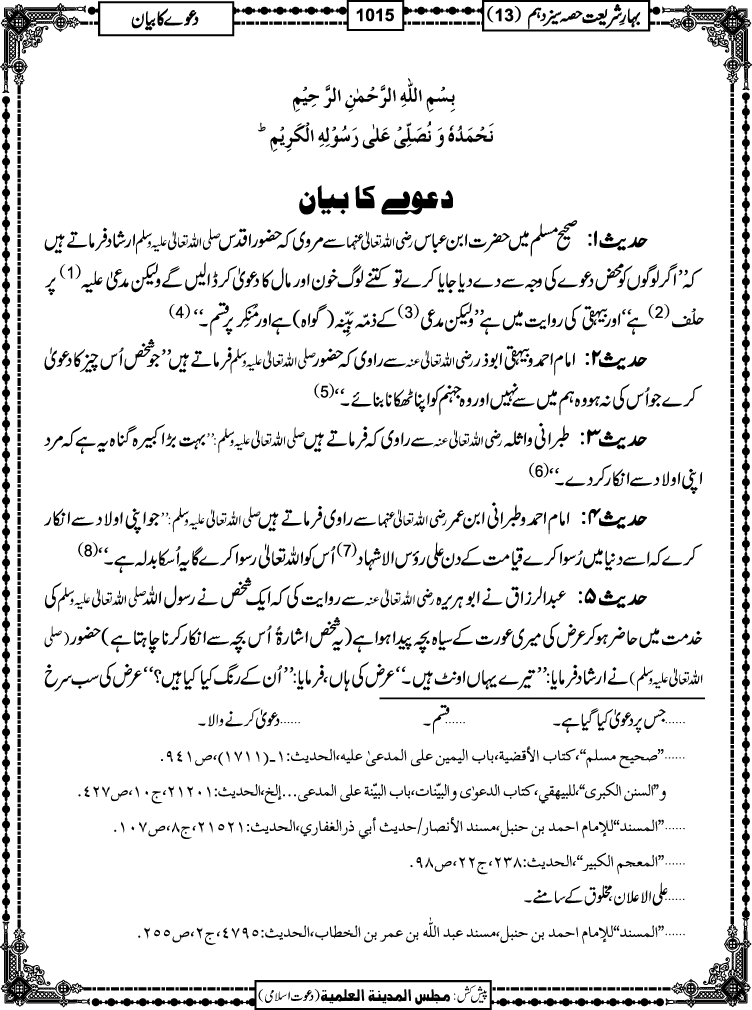 بہارِ شریعت حصہ سیزدہم (13)
1015
دعوے کا بیان
بِسْمِ اللهِ الرَّحْمٰنِ الرَّحِیْمِ
نَحْمَدُهٗ وَ نُصَلِّیْ عَلٰی رَسُوْلِهِ الْكَرِیْمِ ؕ
دعوے کا بیان
حدیث ۱: صحیح مسلم میں حضرت ابن عباس رضی اللہ تعالیٰ عنہما سے مروی کہ حضور اقدس صلی اللہ تعالیٰ علیہ وسلم ارشاد فرماتے ہیں
کہ ’’اگر لوگوں کو محض دعوے کی وجہ سے دے دیا جایا کرے تو کتنے لوگ خون اور مال کا دعویٰ کر ڈالیں گے ولیکن مدعیٰ علیہ (1) پر
حلف (2) ہے‘‘ اور بیہقی کی روایت میں ہے ’’ولیکن مدعی (3) کے ذمّہ بیّنہ (گواہ) ہے اور منکِر پر قسم۔‘‘ (4)
حدیث ۲: امام احمد و بیہقی ابوذر رضی اللہ تعالیٰ عنہ سے راوی کہ حضور صلی اللہ تعالیٰ علیہ وسلم فرماتے ہیں ’’جو شخص اُس چیز کا دعویٰ
کرے جو اُس کی نہ ہو وہ ہم میں سے نہیں اور وہ جہنم کو اپنا ٹھکانا بنائے۔‘‘ (5)
حدیث ۳: طبرانی واثلہ رضی اللہ تعالیٰ عنہ سے راوی کہ فرماتے ہیں صلی اللہ تعالیٰ علیہ وسلم: ’’بہت بڑا کبیرہ گناہ یہ ہے کہ مرد
اپنی اولاد سے انکار کردے۔‘‘ (6)
حدیث ۴: امام احمد و طبرانی ابن عمر رضی اللہ تعالیٰ عنہما سے راوی فرماتے ہیں صلی اللہ تعالیٰ علیہ وسلم: ’’جو اپنی اولاد سے انکار
کرے کہ اسے دنیا میں رُسوا کرے قیامت کے دن علی رؤس الاشہاد (7) اُس کو اللہ تعالیٰ رسوا کرے گا یہ اُسکا بدلہ ہے۔‘‘ (8)
حدیث ۵: عبدالرزاق نے ابوہریرہ رضی اللہ تعالیٰ عنہ سے روایت کی کہ ایک شخص نے رسول اللہ صلی اللہ تعالیٰ علیہ وسلم کی
خدمت میں حاضر ہو کر عرض کی میری عورت کے سیاہ بچہ پیدا ہوا ہے (یہ شخص اشارۃً اُس بچہ سے انکار کرنا چاہتا ہے) حضور (صلی
اللہ تعالیٰ علیہ وسلم) نے ارشاد فرمایا: ’’تیرے یہاں اونٹ ہیں۔‘‘ عرض کی ہاں، فرمایا: ’’اُن کے رنگ کیا کیا ہیں؟‘‘ عرض کی سب سرخ
......جس پر دعویٰ کیا گیا ہے۔ ......قسم۔ ......دعویٰ کرنے والا۔
......’’صحیح مسلم‘‘، کتاب الأقضية، باب الیمین علی المدعیٰ علیه، الحدیث: ۱۔(۱۷۱۱)، ص۹۴۱.
و ’’السنن الکبری‘‘، للبیهقي، کتاب الدعوٰی والبیّنات، باب البیّنة علی المدعی...إلخ، الحدیث: ۲۱۲۰۱، ج۱۰، ص۴۲۷.
......’’المسند‘‘ للإمام احمد بن حنبل، مسند الأنصار/حدیث أبي ذر الغفاري، الحدیث: ۲۱۵۲۱، ج۸، ص۱۰۷.
......’’المعجم الکبیر‘‘، الحدیث: ۲۳۸، ج۲۲، ص۹۸.
......علی الاعلان، مخلوق کے سامنے۔
......’’المسند‘‘ للإمام احمد بن حنبل، مسند عبد اللّٰه بن عمر بن الخطاب، الحدیث: ۴۷۹۵، ج۲، ص۲۵۵.
پیش کش: مجلس المدينة العلمية (دعوت اسلامی)